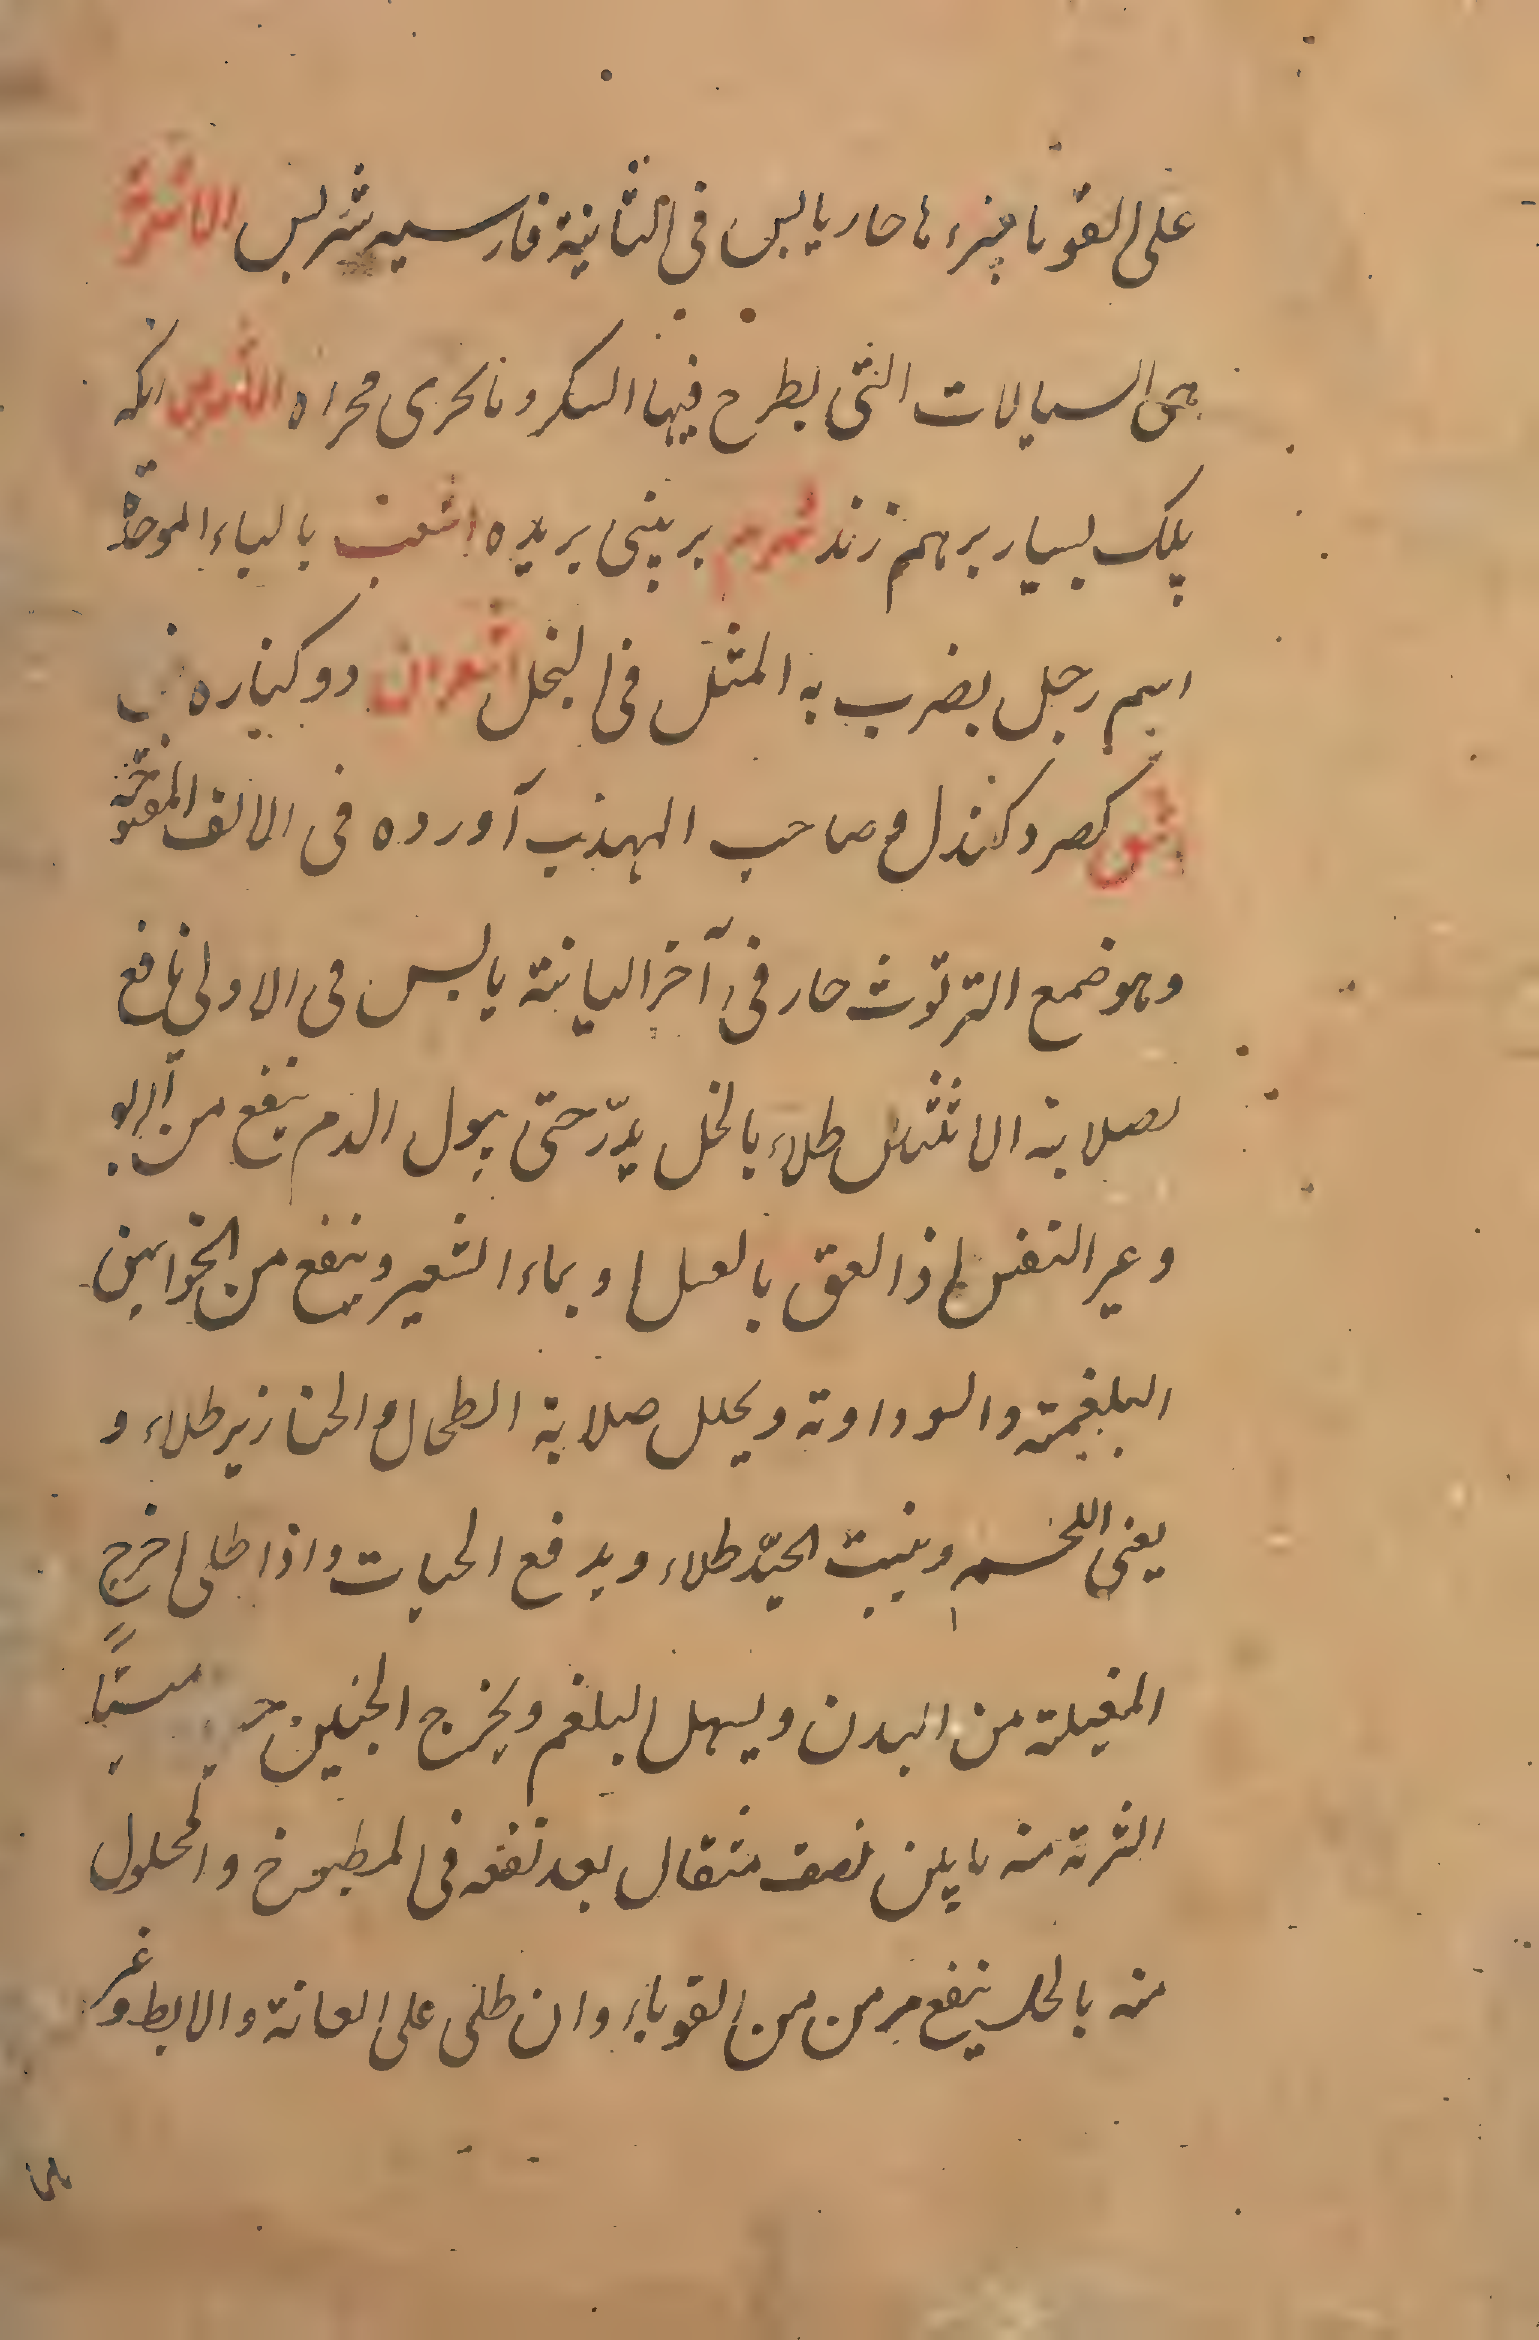 على القوبا مبزء ها حار يابس فى الثانية فارسيه شربس الاشربة
هى السيالات التى يطرح فيها السكر و ما يجرى مجراه انكه
پلك بسيار برهم زند اشرم بر بينى بريده اشعب بالباء الموحدة
اسم رجل يضرب به المثل فى البخل اشعران دو كناره
اشق كصرد كندل و صاحب المهذب آورده فى الالف المفتوحة
وهو ضمع الترتوث حار فى آخر الثانية يابس فى الاولى نافع
لصلابة الانثيين طلاء بالخل يدرّ حتى يبول الدم ينفع من الربو
وعسر النفس اذا لعق بالعسل او بماء الشعير وينفع من الخوانيق
البلغمية والسوداوية ويحلل صلابة الطحال والخنازير طلاء و
يعنى اللحم وينبت الجيّد طلاء ويدفع الحيات واذا طلى اخرج
المغيلة من البدن ويسهل البلغم ويخرج الجنين ميتا
الشربة منه مابين نصف مثقال بعد نقعه فى المطبوخ والمحلول
منه بالخل ينفع مرمن من القوباء وان طلى على العانة والابط وغير